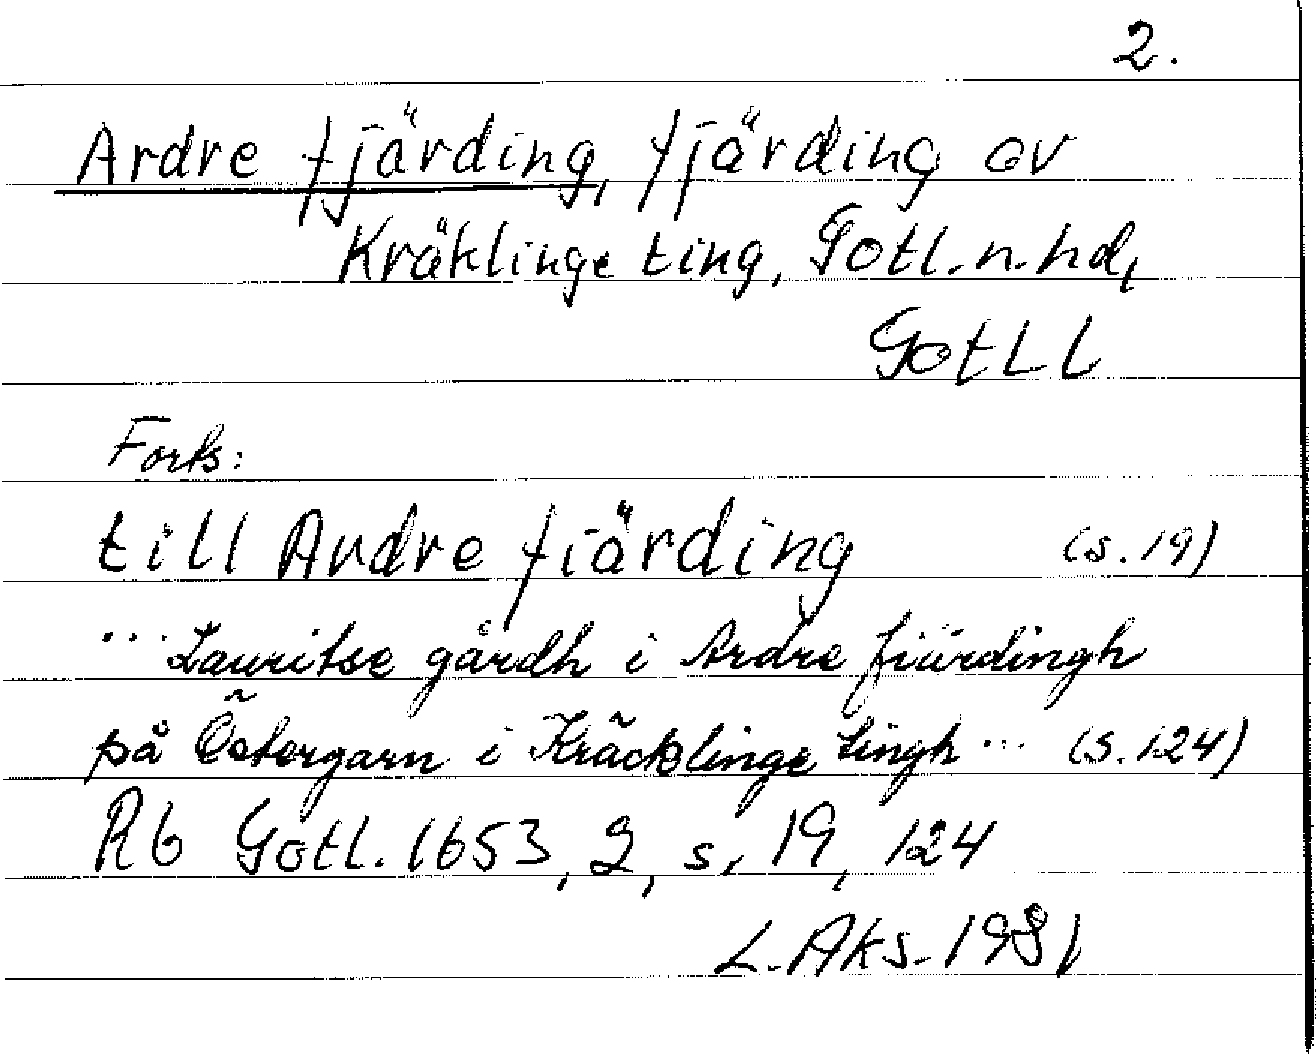 2.
Ardre fjärding, fjärding av
Kräklinge ting, Gotl. n. hd,
Gotl. l
Forts:
till Ardre fiärding (s. 19)
... Lauritse gårdh i Ardre fiärdingh
på Östergarn i Kräcklinge tingh ... (s. 124)
Rb Gotl. 1653, 2, s. 19, 124
L. Aks. 1981